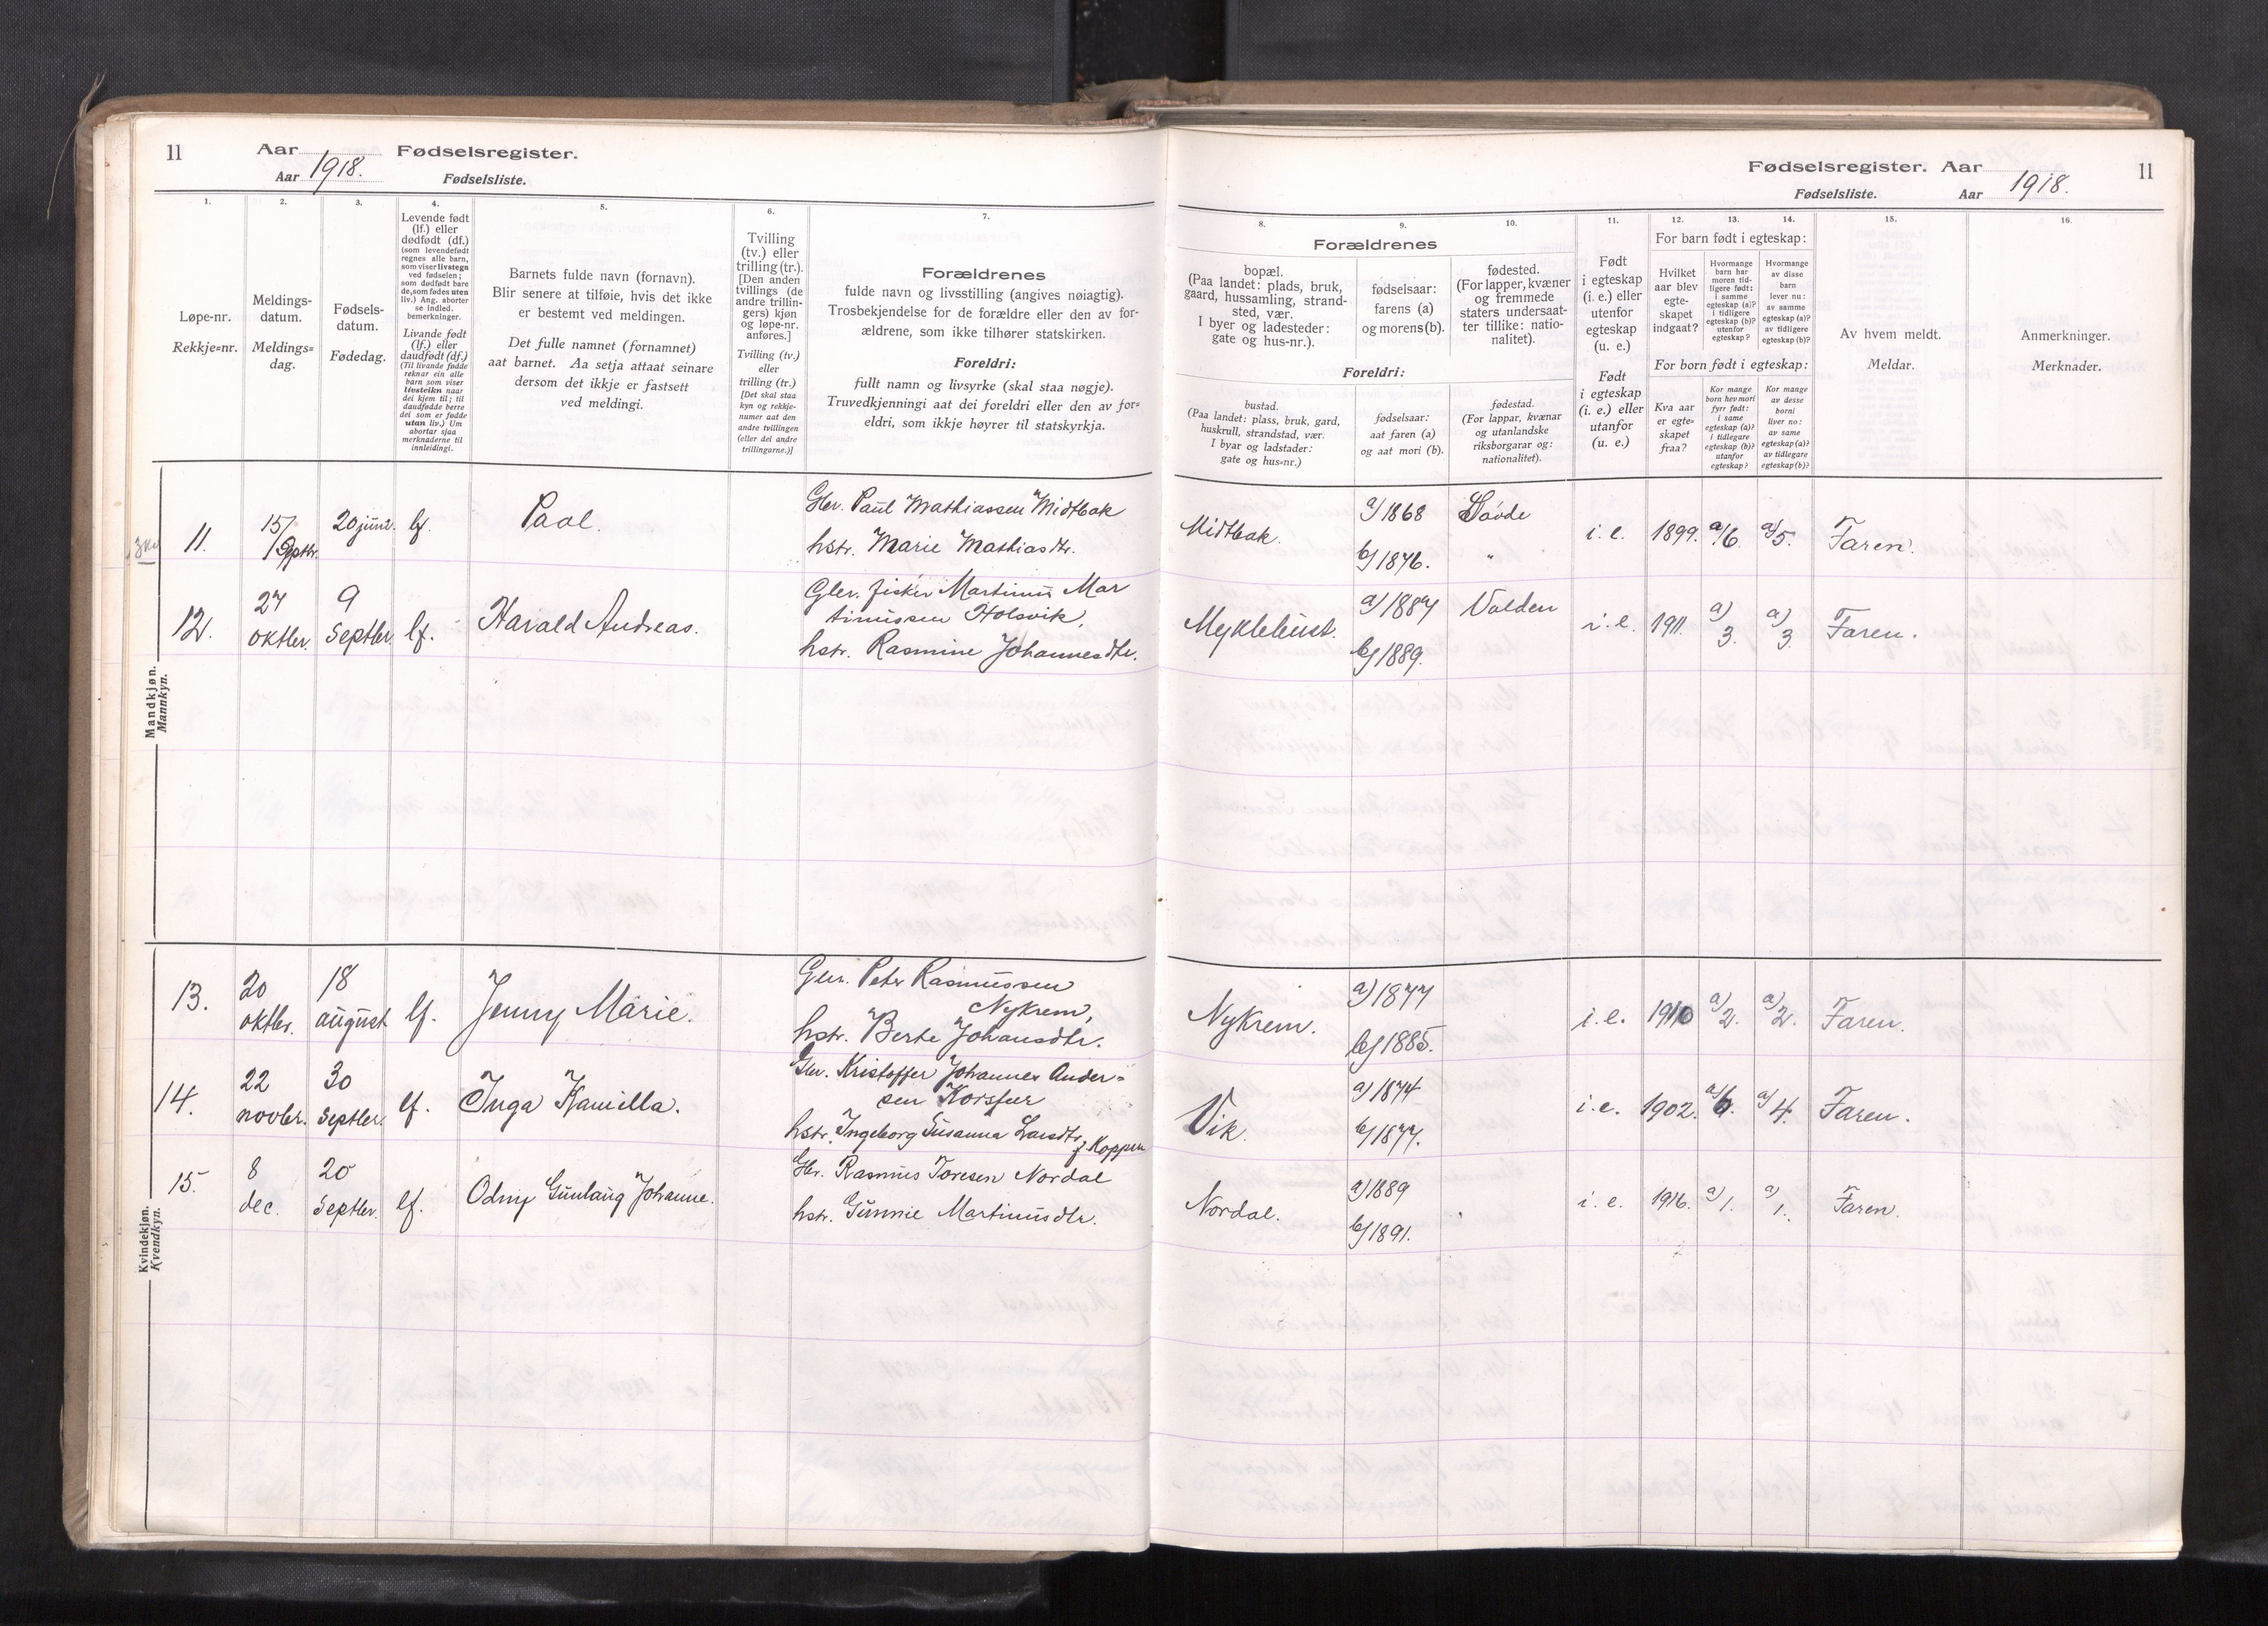 11
Aar
Fødselsregister.
Aar 1918.
Fødselsliste.
1.
2.
3.
4.
5.
6.
7.
Løpe-nr.
Rekkje=nr.
Meldings-
datum.
Meldings=
dag.
Fødsels-
datum.
Fødedag.
Levende født
(lf.) eller
dødfødt (df.)
(som levendefødt
regnes alle barn,
som viser livstegn
ved fødselen;
som dødfødt bare
de, som fødes uten
liv.) Ang. aborter
se indled.
bemerkninger.
Livande født
(lf.) eller
daudfødt (df.)
(Til livande fødde
reknar ein alle
barn som viser
livsteikn naar
dei kjem til; til
daudfødde berre
dei som er fødde
utan liv.) Um
abortar sjaa
merknaderne til
innleidingi.
Barnets fulde navn (fornavn).
Blir senere at tilføie, hvis det ikke
er bestemt ved meldingen.
Det fulle namnet (fornamnet)
aat barnet. Aa setja attaat seinare
dersom det ikkje er fastsett
ved meldingi.
Tvilling
(tv.) eller
trilling (tr.).
[Den anden
tvillings (de
andre trillin-
gers) kjøn
og løpe-nr.
anføres.]
Tvilling (tv.)
eller
trilling (tr.)
[Det skal staa
kyn og rekkje-
numer aat den
andre tvillingen
(eller dei andre
trillingarne.)]
Forældrenes
fulde navn og livsstilling (angives nøiagtig).
Trosbekjendelse for de forældre eller den av for-
ældrene, som ikke tilhører statskirken.
Foreldri:
fullt namn og livsyrke (skal staa nøgje).
Truvedkjenningi aat dei foreldri eller den av for=
eldri, som ikkje høyrer til statskyrkja.
Mandkjøn.
Mannkyn.
11.
15/
Septbr.
20 juni.
lf.
Paal.
Gbr. Paul Mathiassen Midtbak
hstr. Marie Mathiasdtr.
12.
27
oktbr.
9
Septbr.
lf.
Harald Andreas.
Gbr. fisker Martinus Mar
tinussen Holsvik,
hstr. Rasmine Johannesdtr.
Kvindekjøn.
Kvendkyn.
13.
20
oktbr.
18
august
lf.
Jenny Marie.
Gbr. Peter Rasmussen
Nykrem,
hstr. Berte Johansdtr.
14.
22
novbr.
30
Septbr.
lf.
Inga Kamilla.
Gbr. Kristoffer Johannes Ander=
sen Korsfur
hstr. Ingeborg Susanna Larsdtr. f. Koppen
15.
8
dec.
20
Septbr.
lf.
Odny Gunlaug Johanne.
Gbr. Rasmus Toresen Nordal
hstr. Gunnie Martinusdtr.
Fødselsregister. Aar
11
Fødselsliste.
Aar 1918.
8.
9.
10.
11.
12.
13.
14.
15.
16.
Forældrenes
bopæl.
(Paa landet: plads, bruk,
gaard, hussamling, strand-
sted, vær.
I byer og ladesteder:
gate og hus-nr.).
fødselsaar:
farens (a)
og morens (b).
fødested.
(For lapper, kvæner
og fremmede
staters undersaat-
ter tillike: natio-
nalitet).
Foreldri:
bustad.
(Paa landet: plass, bruk, gard,
huskrull, strandstad, vær.
I byar og ladstader:
gate og hus=nr.)
fødselsaar:
aat faren (a)
og aat mori (b).
fødestad.
(For lappar, kvænar
og utanlandske
riksborgarar og:
nationalitet).
Født
i egteskap
(i. e.) eller
utenfor
egteskap
(u. e.)
Født
i egteskap
(i. e.) eller
utanfor
(u. e.)
For barn født i egteskap:
Hvilket
aar blev
egte-
skapet
indgaat?
Hvormange
barn har
moren tid-
ligere født:
i samme
egteskap (a)?
i tidligere
egteskap (b)?
utenfor
egteskap?
Hvormange
av disse
barn
lever nu:
av samme
egteskap (a)?
av tidligere
egteskap (b)?
For born født i egteskap:
Kva aar
er egte-
skapet
fraa?
Kor mange
born hev mori
fyrr født:
i same
egteskap (a)?
i tidlegare
egteskap (b)?
utanfor
egteskap?
Kor mange
av desse
borni
liver no:
av same
egteskap (a)?
av tidlegare
egteskap (b)?
Av hvem meldt.
Meldar.
Anmerkninger.
Merknader.
Midtbak.
a/1868
b/1876.
Søvde
"
i. e.
1899.
a/6.
a/5.
Faren.
Myklebust.
a/1887
b/1889.
Volden
i. e.
1911.
a/3.
a/3
Faren.
Nykrem.
a/1877
b/1885.
i. e.
1910
a/2.
a/2.
Faren.
Vik.
a/1874
b/1877.
i. e.
1902.
a/6.
a/4.
Faren.
Nordal.
a/1889
b/1891.
i. e.
1916.
a/1.
a/1.
Faren.